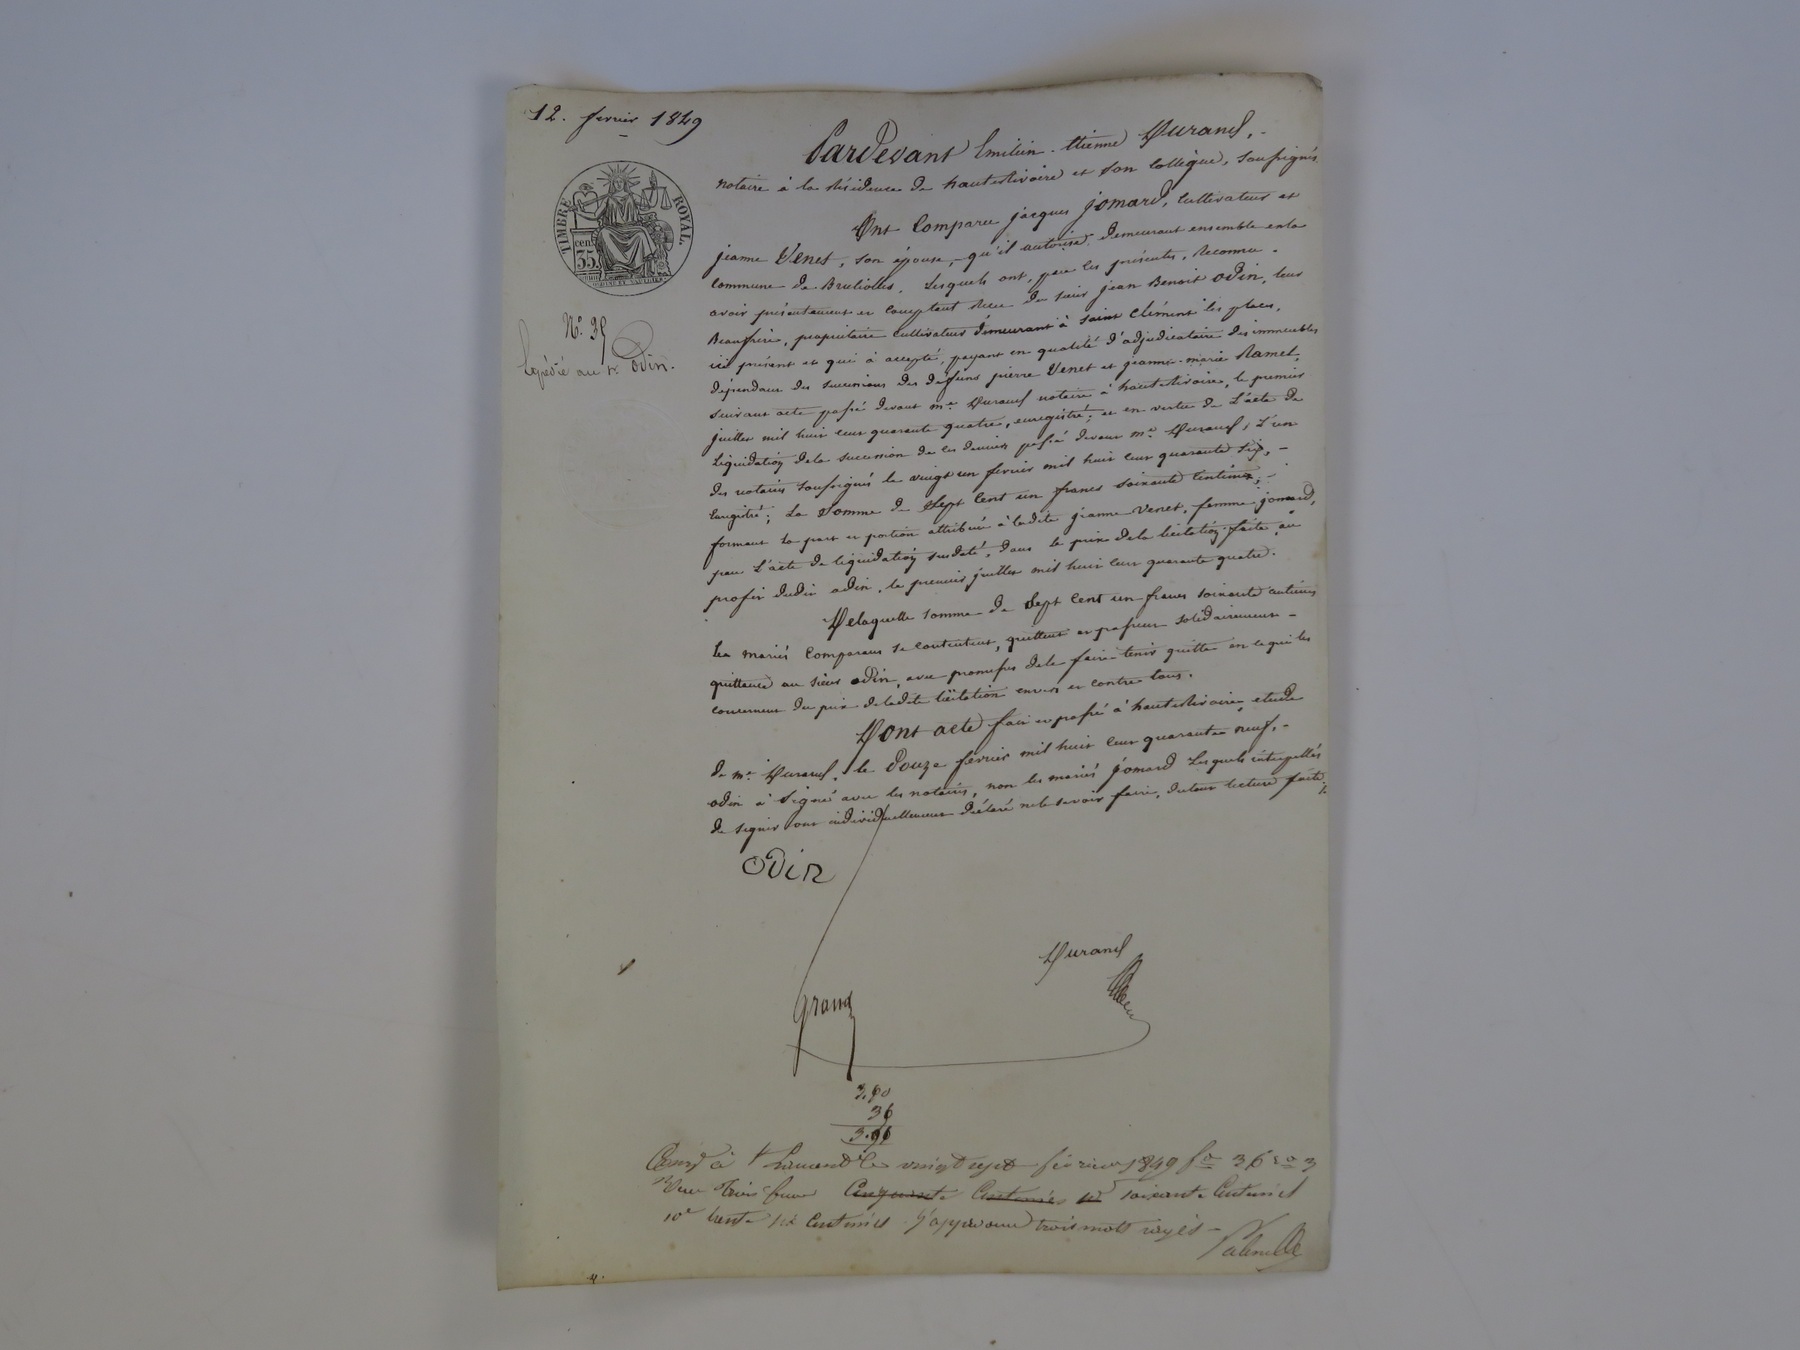 12. fevrier 1849
Pardevant Emilien-Etienne Durand,
notaire à la résidence de hauterivoire et son collègue, soussignés
TIMBRE ROYAL.
cen. 35.
Ont Comparu jacques jomard, cultivateur et
jeanne Venet, son épouse, qu'il autorise, demeurant ensemble en la
commune de Brullioles, Lesquels ont, par les présentes, Reconnu
avoir présentement et comptant Reçu du sieur jean Benoit Odin, leur
Beaufrère, propriétaire cultivateur demeurant à saint Clément les places,
ici présent et qui à accepté, payant en qualité d'adjudicataire des immeubles
dépendans des successions des défunts pierre Venet et jeanne-marie Ramel,
suivant acte passé devant me. Durand notaire à hauterivoire, le premier
juillet mil huit cent quarante quatre, enregistré; et en vertu de L'acte de
Liquidation de la succession de ces derniers passé devant me. Durand, L'un
des notaires soussignés le vingt un fevrier mil huit cent quarante six,
Enregistré; La Somme de Sept Cent un francs soixante Centimes,
formant la part et portion attribuée à ladite jeanne Venet, femme jomard,
par L'acte de liquidation susdaté, dans le prix de la licitation faite au
profit dudit odin, le premier juillet mil huit cent quarante quatre.
N°. 35
Expédié au sr Odin.
Delaquelle somme de Sept Cent un francs soixante centimes
Les mariés Comparans se contentent, quittent et passent solidairement
quittance au sieur odin, avec promesse de le faire tenir quitte en ce qui les
concernent du prix de ladite licitation envers et contre tous.
Dont acte fait et passé à hauterivoire, etude
de me. Durand, le douze fevrier mil huit cent quarante neuf,
odin à Signé avec les notaires, non les mariés jomard Lesquels interpellés
de signer ont individuellement déclaré ne le savoir faire, du tout lecture faite.
Odin
Durand
Grand
3.60
36
3.96
Enreg à St Laurent le vingt sept fevrier 1849 fo 36 ro 3
Reçu trois francs Cinquante Centimes pr soixante Centimes
10e trente six Centimes. J'approuve trois mots rayés